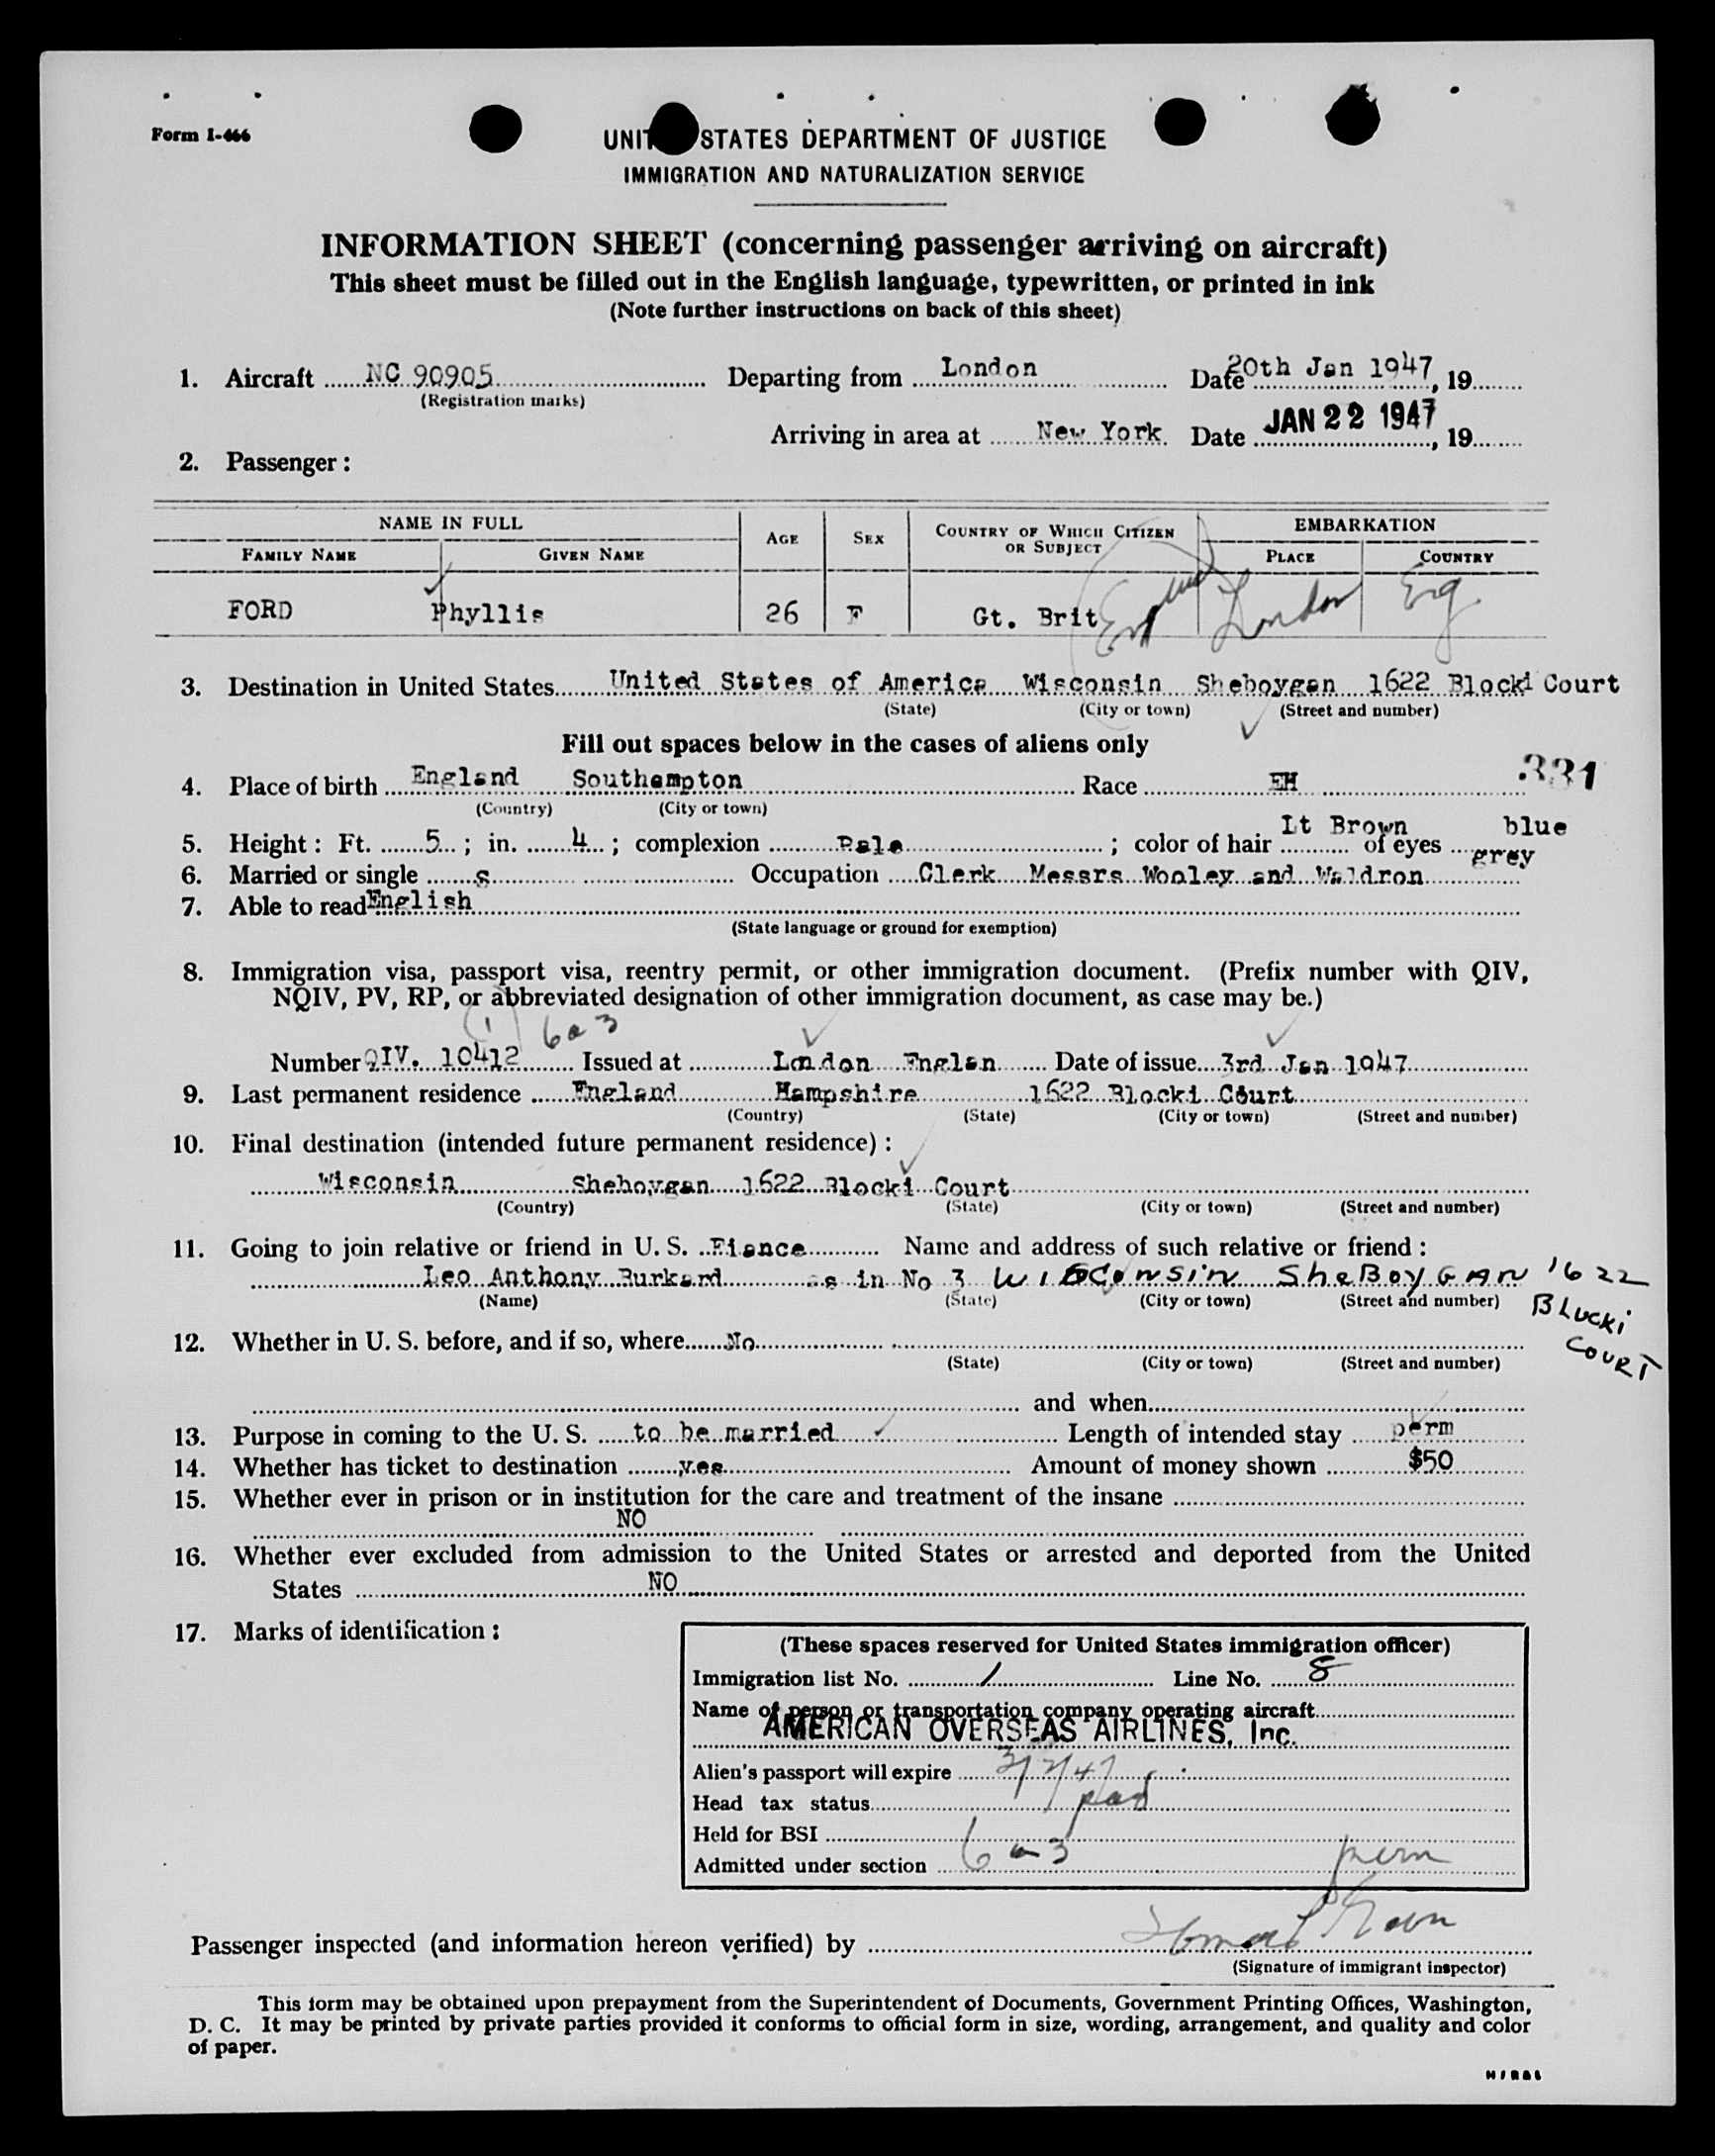 Form I-466
UNIT STATES DEPARTMENT OF JUSTICE
IMMIGRATION AND NATURALIZATION SERVICE
INFORMATION SHEET (concerning passenger arriving on aircraft)
This sheet must be filled out in the English language, typewritten, or printed in ink
(Note further instructions on back of this sheet)
1. Aircraft NC 90905 Departing from London Date 20th Jan 1947, 19
(Registration marks)
Arriving in area at New York Date JAN 22 1947, 19
2. Passenger:
NAME IN FULL AGE SEX COUNTRY OF WHICH CITIZEN OR SUBJECT EMBARKATION
FAMILY NAME GIVEN NAME PLACE COUNTRY
FORD Phyllis 26 F Gt. Brit London Eng
3. Destination in United States United States of America Wisconsin Sheboygan 1622 Blocki Court
(State) (City or town) (Street and number)
Fill out spaces below in the cases of aliens only
331
4. Place of birth England Southampton Race EH
(Country) (City or town)
5. Height: Ft. 5; in. 4; complexion Pale; color of hair Lt Brown of eyes blue grey
6. Married or single s Occupation Clerk Messrs Wooley and Waldron
7. Able to read English
(State language or ground for exemption)
8. Immigration visa, passport visa, reentry permit, or other immigration document. (Prefix number with QIV,
NQIV, PV, RP, or abbreviated designation of other immigration document, as case may be.)
(1) 6a3
Number QIV. 10412 Issued at London Englan Date of issue 3rd Jan 1947
9. Last permanent residence England Hampshire 1622 Blocki Court
(Country) (State) (City or town) (Street and number)
10. Final destination (intended future permanent residence):
Wisconsin Sheboygan 1622 Blocki Court
(Country) (State) (City or town) (Street and number)
11. Going to join relative or friend in U. S. Fiance Name and address of such relative or friend:
Leo Anthony Burkard as in No 3 WISCONSIN SHEBOYGAN 1622
(Name) (State) (City or town) (Street and number) BLUCKI
COURT
12. Whether in U. S. before, and if so, where No
(State) (City or town) (Street and number)
and when
13. Purpose in coming to the U. S. to be married Length of intended stay perm
14. Whether has ticket to destination yes Amount of money shown $50
15. Whether ever in prison or in institution for the care and treatment of the insane
NO
16. Whether ever excluded from admission to the United States or arrested and deported from the United
States NO
17. Marks of identification:
(These spaces reserved for United States immigration officer)
Immigration list No. 1 Line No. 8
Name of person or transportation company operating aircraft
AMERICAN OVERSEAS AIRLINES, Inc.
Alien's passport will expire 3/2/47
Head tax status paid
Held for BSI
Admitted under section 6a3 perm
Passenger inspected (and information hereon verified) by
(Signature of immigrant inspector)
This form may be obtained upon prepayment from the Superintendent of Documents, Government Printing Offices, Washington,
D. C. It may be printed by private parties provided it conforms to official form in size, wording, arrangement, and quality and color
of paper.